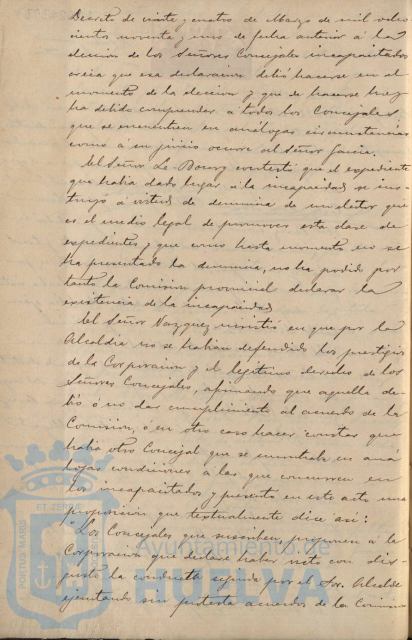 Decreto de veinte y cuatro de Marzo de mil ocho
cientos noventa y uno de fecha anterior á la
eleccion de los Señores Concejales incapacitados
creia que esa declaracion debió hacerse en el
momento de la eleccion y que de hacerse hoy
ha debido comprender á todos los Concejales
que se encuentren en análogas circunstancias
como á su juicio ocurre al Señor García.
El Señor Le-Bourg contestó que el expediente
que habia dado lugar á la incapacidad se ins-
truyó á virtud de denuncia de un elector que
es el medio legal de promover esta clase de
expedientes y que como hasta momento no se
ha presentado la denuncia, no ha podido por
tanto la Comision provincial declarar la
existencia de la incapacidad
El Señor Vazquez insistió en que por la
Alcaldia no se habian defendido los prestigios
de la Corporacion y el legitimo derecho de los
Señores Concejales, afirmando que aquella de-
bió ó no dar cumplimiento al acuerdo de la
Comision, ó en otro caso hacer constar que
habia otro Concejal que se encontraba en aná
logas condiciones á las que concurren en
los incapacitados y presentó en este acto una
proposicion que textualmente dice así:
"Los Concejales que suscriben, proponen á la
Corporacion que declare haber visto con dis-
gusto la conducta seguida por el Sor. Alcalde
ejecutando sin protesta acuerdos de la Comision
PORTUS MARIS
ET TERRÆ
Ayuntamiento de
HUELVA